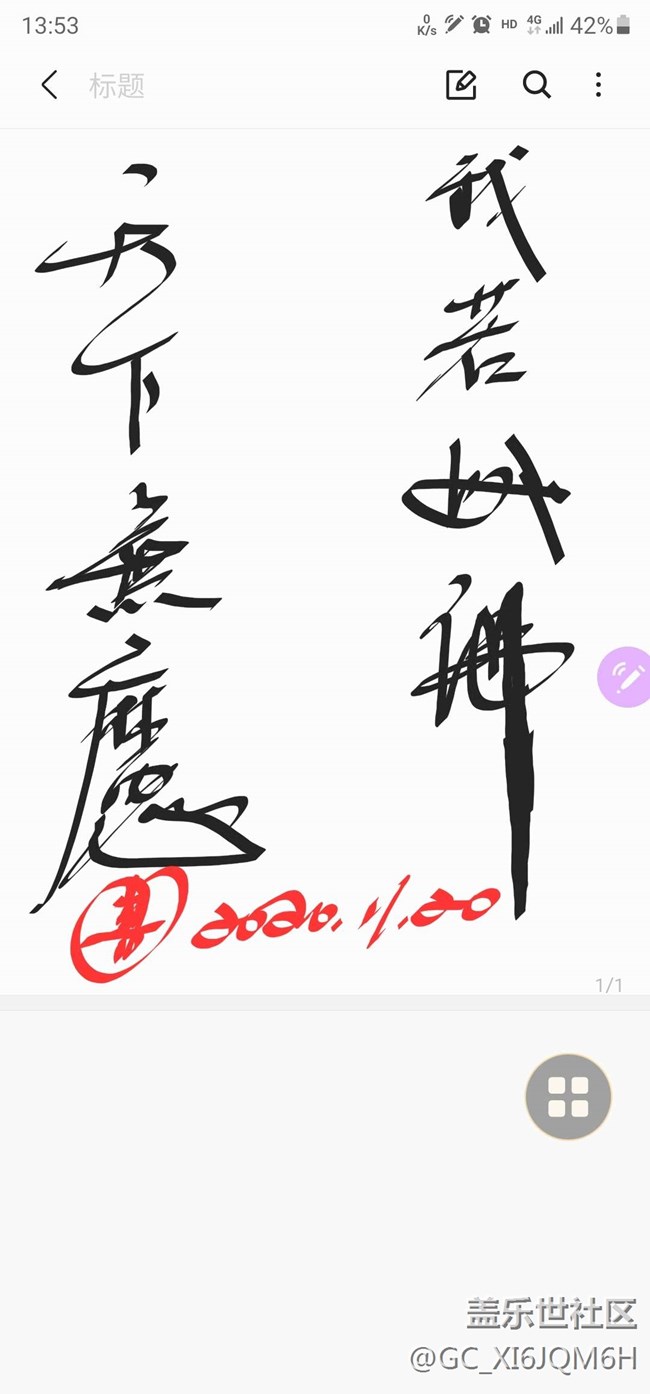 13:53 0 K/s HD 4G 42%
标题
我若佛
天下無魔
2020.11.20
1/1
盖乐世社区
@GC_XI6JQM6H